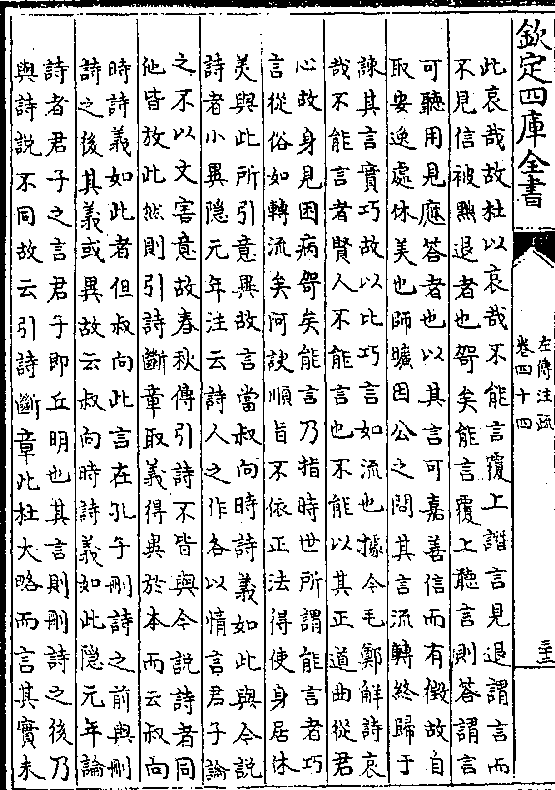 欽定四庫全書
左傳注疏
卷四十四
三十三
此哀哉故杜以哀哉不能言覆上譖言見退謂言而
不見信被黜退者也哿矣能言覆上聽言則答謂言
可聽用見應答者也以其言可嘉善信而有徵故自
取安逸處休美也師曠因公之問其言流轉終歸于
諫其言實巧故以比巧言如流也據今毛鄭解詩哀
哉不能言者賢人不能言也不能以其正道曲從君
心故身見困病哿矣能言乃指時世所謂能言者巧
言從俗如轉流矣阿諛順旨不依正法得使身居休
美與此所引意異故言當叔向時詩義如此與今說
詩者小異隱元年注云詩人之作各以情言君子論
之不以文害意故春秋傳引詩不皆與今說詩者同
他皆放此然則引詩斷章取義得異於本而云叔向
時詩義如此者但叔向此言在孔子刪詩之前與刪
詩之後其義或異故云叔向時詩義如此隱元年論
詩者君子之言君子即丘明也其言則刪詩之後乃
與詩說不同故云引詩斷章此杜大略而言其實未